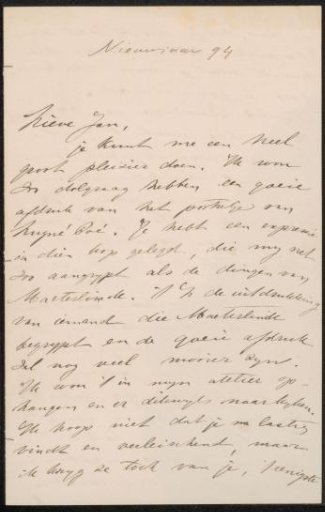 Nieuwjaar 94
Lieve Jan,
je kunt me een heel
groot pleizier doen. Ik wou
zoo dolgraag hebben een goeie
afdruk van het portretje van
Lugné Poë. Je hebt een expressie
in dien kop gelegd, die my net
zoo aangrypt als de dingen van
Maeterlinck. 't Is de uitdrukking
van iemand die Maeterlinck
begrypt en de goeie afdruk
zal nog veel mooier zyn.
Ik wou 't in myn atelier op-
hangen en er dikwyls naar kyken.
Ik hoop niet dat je me lastig
vindt en veeleischend, maar
ik kryg ze toch van je,